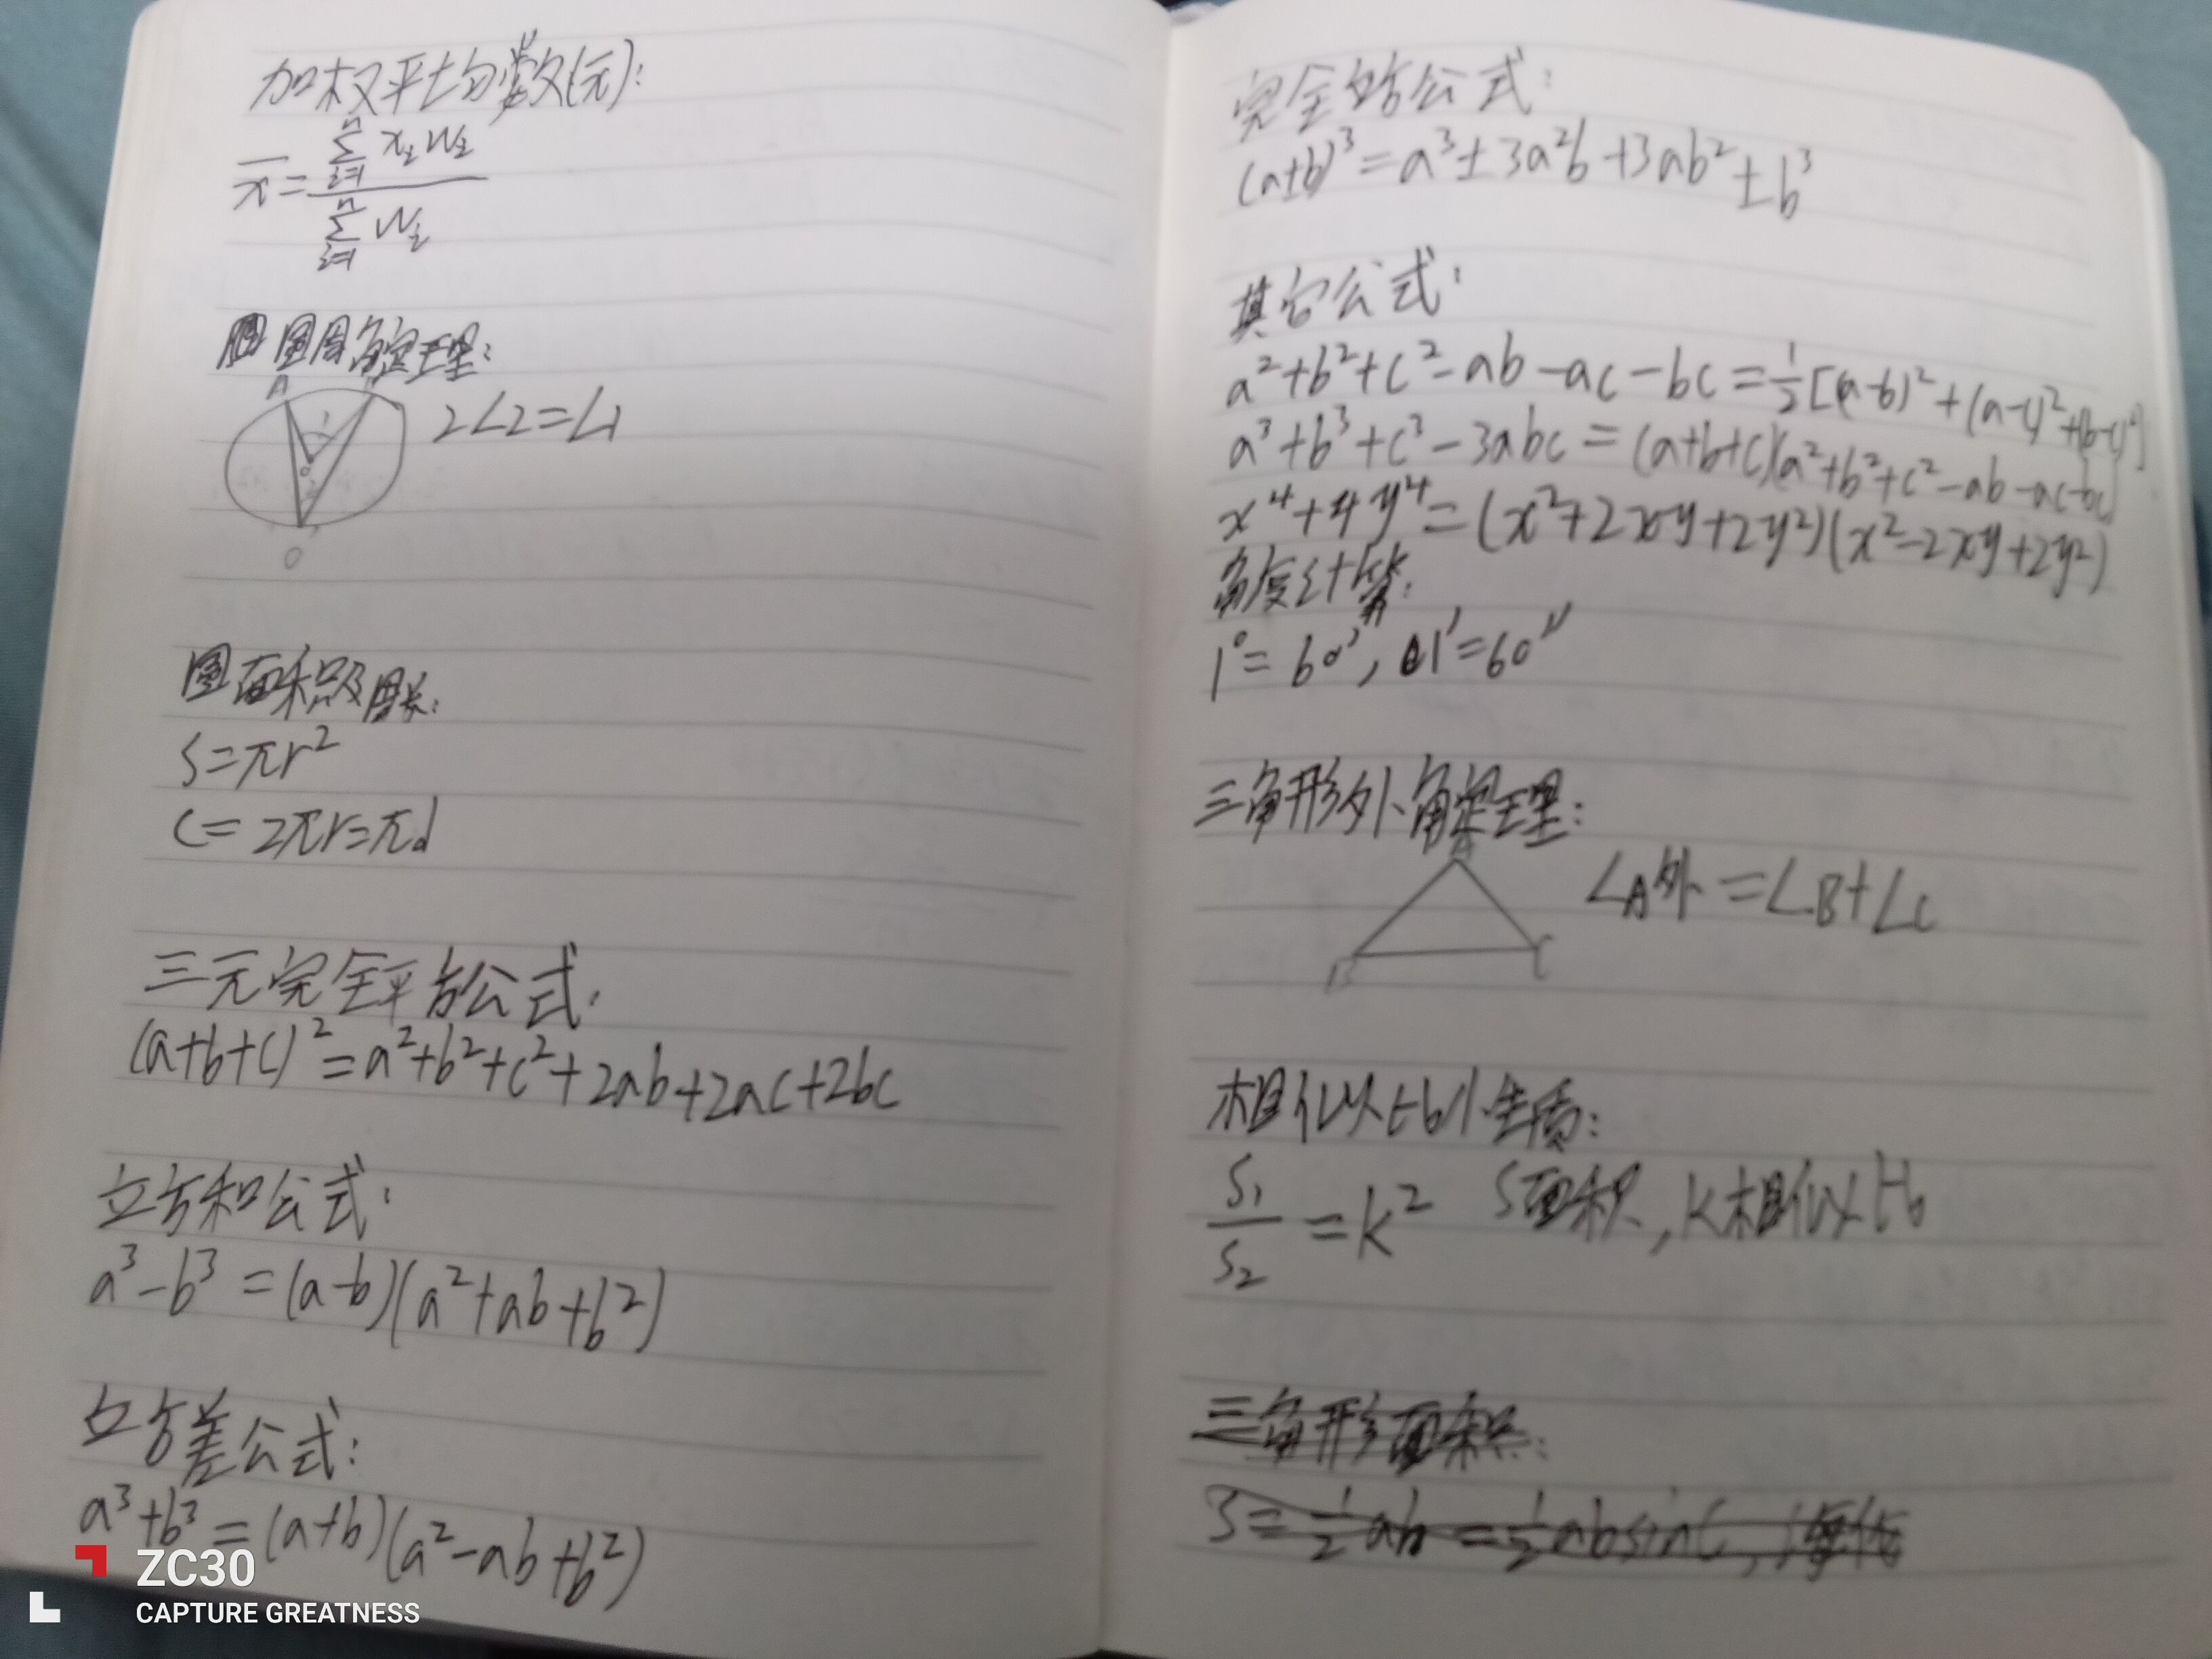 加权平均数(元):
x̄ = \frac{\sum_{i=1}^{n} x_i w_i}{\sum_{i=1}^{n} w_i}
圆周角定理:
A
1
2
O
2∠2=∠1
圆面积及周长:
S=πr²
C=2πr=πd
三元完全平方公式:
(a+b+c)²=a²+b²+c²+2ab+2ac+2bc
立方和公式:
a³-b³=(a-b)(a²+ab+b²)
立方差公式:
a³+b³=(a+b)(a²-ab+b²)
ZC30
CAPTURE GREATNESS
完全立方公式:
(a±b)³=a³±3a²b+3ab²±b³
其它公式:
a²+b²+c²-ab-ac-bc=½[(a-b)²+(a-c)²+(b-c)²]
a³+b³+c³-3abc=(a+b+c)(a²+b²+c²-ab-ac-bc)
x⁴+4y⁴=(x²+2xy+2y²)(x²-2xy+2y²)
角度计算:
1°=60′, 1′=60″
三角形外角定理:
A
∠A外=∠B+∠C
B C
相似比性质:
\frac{S₁}{S₂}=k² S面积,k相似比
三角形面积:
S=½ab=½absinC,